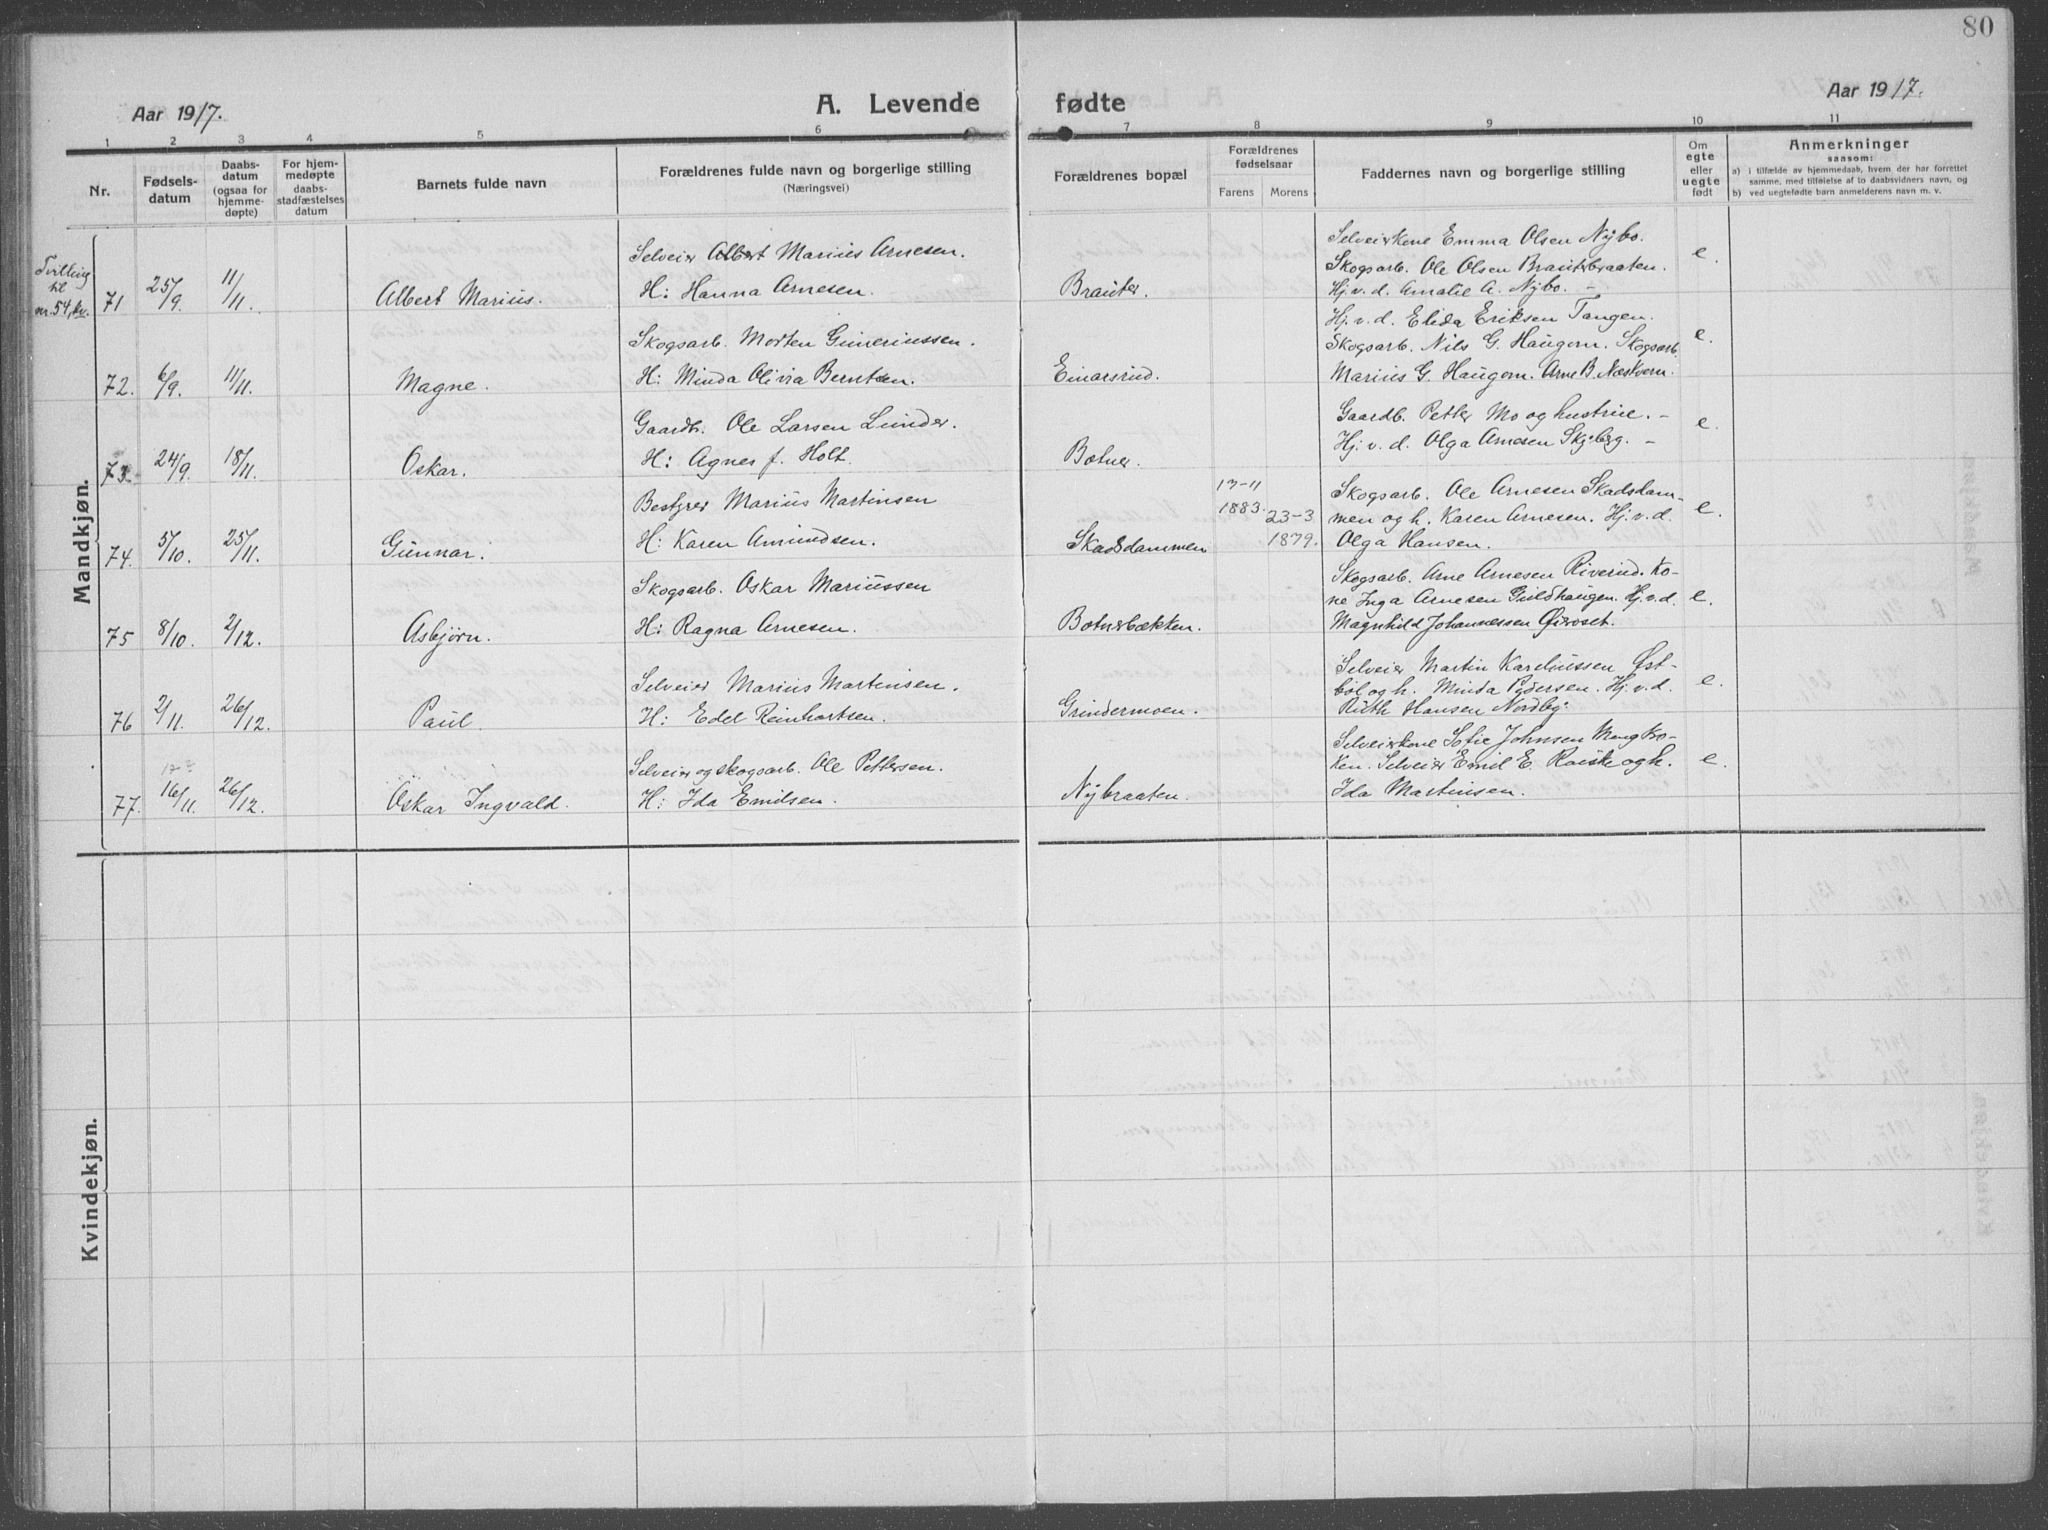 80
Aar 1917.
A. Levende fødte
Aar 1917.
1 2 3 4 5 6 7 8 9 10 11
Nr.
Fødselsdatum
Daabsdatum (ogsaa for hjemmedøpte)
For hjemmedøpte daabsstadfæstelses datum
Barnets fulde navn
Forældrenes fulde navn og borgerlige stilling
(Næringsvei)
Forældrenes bopæl
Forældrenes fødselsaar
Farens Morens
Faddernes navn og borgerlige stilling
Om egte eller uegte født
Anmerkninger
saasom:
a) i tilfælde av hjemmedaab, hvem der har forrettet
samme, med tilføielse af to daabsvidners navn, og
b) ved uegtefødte barn anmelderens navn m. v.
Mandkjøn.
Tvilling
til
nr. 54, kv.
71 25/9. 11/11. Albert Marius.
Selveier Albert Marius Arnesen.
H: Hanna Arnesen.
Brauter.
Selveierkone Emma Olsen Nybo.
Skogsarb. Ole Olsen Brauterbraaten.
Hj. v. d. Amalie A. Nybo. –
e.
72. 6/9. 11/11. Magne.
Skogsarb. Morten Guneriussen.
H: Minda Olivia Berntsen.
Einarsrud.
Hj. v. d. Elida Eriksen Tangen.
Skogsarb. Nils G. Haugom. Skogsarb.
Marius G. Haugom. Arne B. Næskvern.
e.
73. 24/9. 18/11. Oskar.
Gaardb. Ole Larsen Lunder.
H: Agnes f. Holt.
Botner.
Gaardb. Petter Mo og hustrue. –
Hj. v. d. Olga Arnesen Skjeberg. –
e.
74. 5/10. 25/11. Gunnar.
Bestyrer Marius Martinsen
H: Karen Amundsen.
Skadsdammen
13-11
1883.
23-3
1879.
Skogsarb. Ole Arnesen Skadsdam-
men og h. Karen Arnesen. Hj. v. d.
Olga Hansen.
e.
75 8/10. 2/12. Asbjørn.
Skogsarb. Oskar Mariussen
H: Ragna Arnesen.
Botnerbækken.
Skogsarb. Arne Arnesen Riverud. Ko-
ne Inga Arnesen Guldhaugen. Hj. v. d.
Magnhild Johannessen
e.
76 2/11. 26/12. Paul.
Selveier Marius Martinsen.
H: Edel Reinhartsen.
Grindermoen.
Selveier Martin Karelinssen Øst-
bøl og h. Minda Pedersen. Hj. v. d.
Ruth Hansen Nordby.
e.
77. 16/11. 26/12. Oskar Ingvald.
Selveier og skogsarb. Ole Pettersen.
H: Ida Emilsen.
Nybraaten.
Selveierkone Sofie Johnsen Mengkro-
ken. Selveier Emil E. Roiske og h.
Ida Martinsen.
e.
Kvindekjøn.